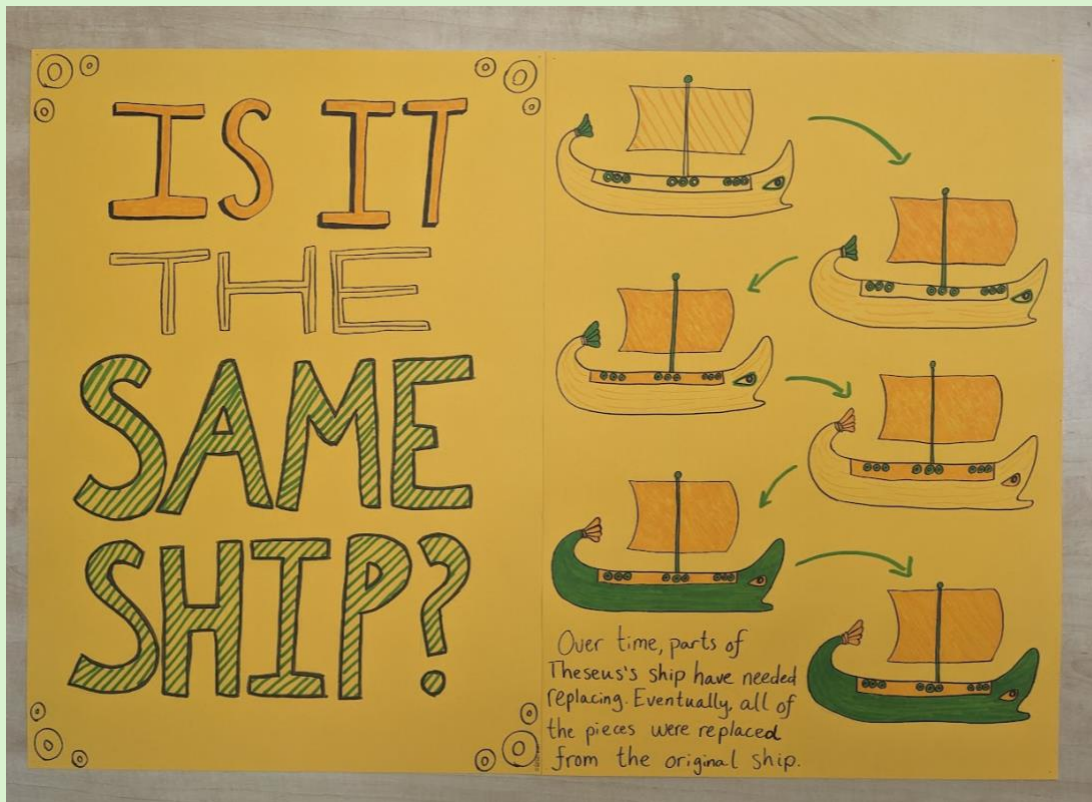 IS IT
THE
SAME
SHIP?
Over time, parts of
Theseus's ship have needed
replacing. Eventually, all of
the pieces were replaced
from the original ship.